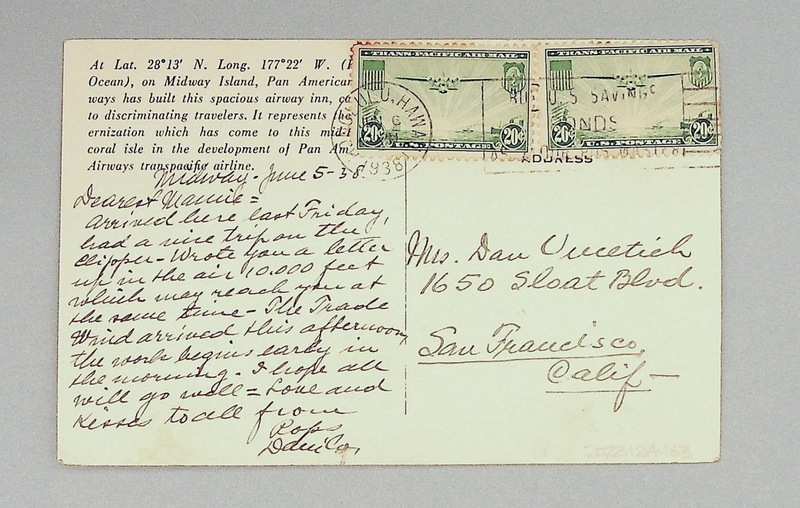 At Lat. 28°13' N. Long. 177°22' W. (
Ocean), on Midway Island, Pan American
ways has built this spacious airway inn, ca
to discriminating travelers. It represents the
ernization which has come to this mid-
coral isle in the development of Pan Am
Airways transpacific airline.
TRANS-PACIFIC AIR MAIL
20¢ 20¢
U.S. POSTAGE
TRANS-PACIFIC AIR MAIL
20¢ 20¢
U.S. POSTAGE
HONOLULU, HAWAII
6
1938
BUY U.S. SAVINGS
BONDS
ASK YOUR POSTMASTER
ADDRESS
Midway - June 5-38
Dearest Mamie =
arrived here last Friday,
had a nice trip on the
Clipper - Wrote you a letter
up in the air 10.000 feet
which may reach you at
the same time - The Trade
Wind arrived this afternoon,
the work begins early in
the morning. I hope all
will go well = Love and
Kisses to all from
Pops
Danilo,
Mrs. Dan Vucetich
1650 Sloat Blvd.
San Francisco,
Calif -
2022.124.163